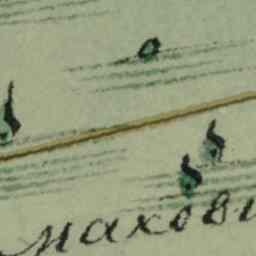 махови